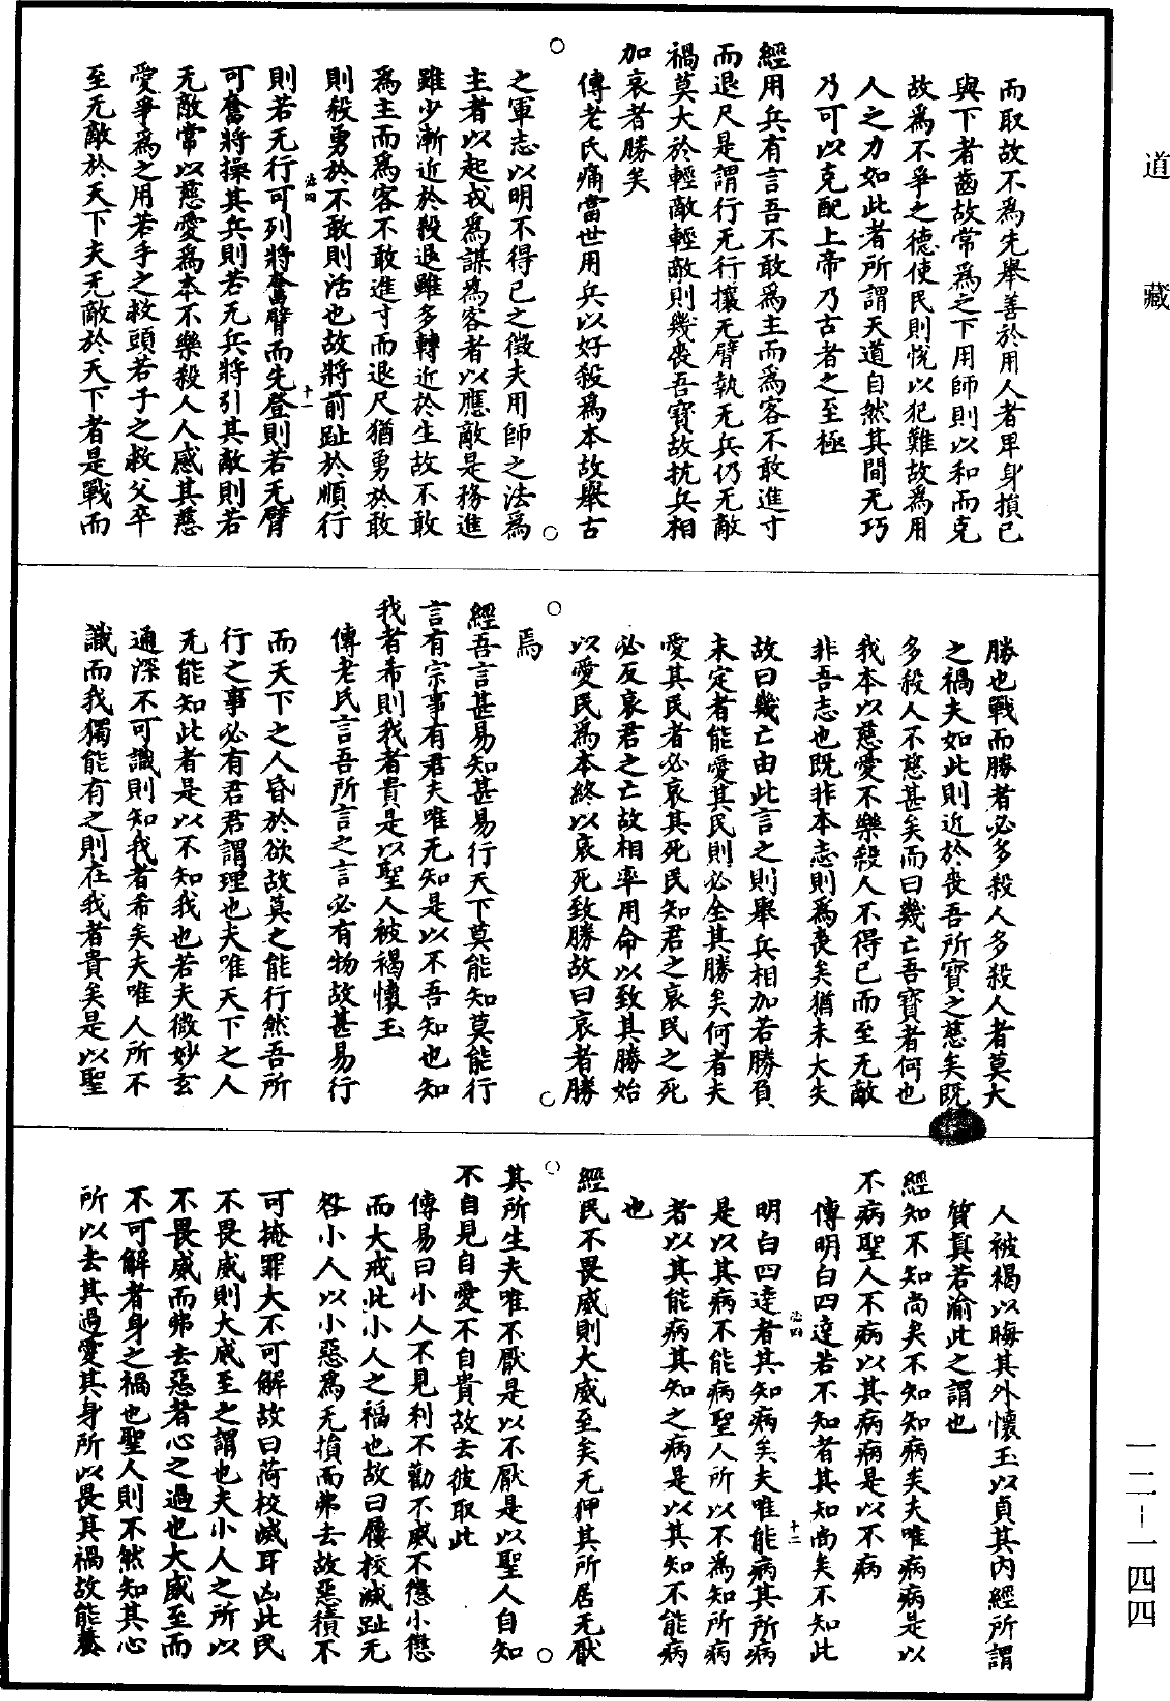 道藏
而取故不為先舉善於用人者卑身損己
與下者蓄故常為之下用師則以和而克
故為不爭之德使民則悅以犯難故為用
人之力如此者所謂天道自然其間无巧
乃可以克配上帝乃古者之至極
經用兵有言吾不敢為主而為客不敢進寸
而退尺是謂行无行攘无臂執无兵仍无敵
禍莫大於輕敵輕敵則幾喪吾寶故抗兵相
加哀者勝矣
傳老氏痛當世用兵以好殺為本故舉古
之軍志以明不得已之徵夫用師之法為
主者以起戎為謀為客者以應敵是務進
雖少漸近於殺退雖多轉近於生故不敢
為主而為客不敢進寸而退尺猶勇於敢
則殺勇於不敢則活也故將前趾於順行
則若无行可列將奮臂而先登則若无臂
可奮將操其兵則若无兵將引其敵則若
无敵常以慈愛為本不樂殺人人感其慈
愛爭為之用若手之救頭若子之救父卒
至无敵於天下夫无敵於天下者是戰而
勝也戰而勝者必多殺人多殺人者莫大
之禍夫如此則近於喪吾所寶之慈矣既
多殺人不慈甚矣而曰幾亡吾寶者何也
我本以慈愛不樂殺人不得已而至无敵
非吾志也既非本志則為喪矣猶未大失
故曰幾亡由此言之則舉兵相加若勝負
未定者能愛其民則必全其勝矣何者夫
愛其民者必哀其死民知君之哀民之死
必反哀君之亡故相率用命以致其勝始
以愛民為本終以哀死致勝故曰哀者勝
焉
經吾言甚易知甚易行天下莫能知莫能行
言有宗事有君夫唯无知是以不吾知也知
我者希則我者貴是以聖人被褐懷玉
傳老氏言吾所言之言必有物故甚易行
而天下之人昏於欲故莫之能行然吾所
行之事必有君君謂理也夫唯天下之人
无能知此者是以不知我也若夫微妙玄
通深不可識則知我者希矣夫唯人所不
識而我獨能有之則在我者貴矣是以聖
人被褐以晦其外懷玉以貞其內經所謂
質真若渝此之謂也
經知不知尚矣不知知病矣夫唯病病是以
不病聖人不病以其病病是以不病
傳明白四達若不知者其知尚矣不知此
明白四達者其知病矣夫唯能病其所病
是以其病不能病聖人所以不為知所病
者以其能病其知之病是以其知不能病
也
經民不畏威則大威至矣无狎其所居无厭
其所生夫唯不厭是以不厭是以聖人自知
不自見自愛不自貴故去彼取此
傳易曰小人不見利不勸不威不懲小懲
而大戒此小人之福也故曰屨校滅趾无
咎小人以小惡為无損而弗去故惡積不
可掩罪大不可解故曰荷校滅耳凶此民
不畏威則大威至之謂也夫小人之所以
不畏威而弗去惡者心之過也大威至而
不可解者身之禍也聖人則不然知其心
所以去其過愛其身所以畏其禍故能養
一二-一四四